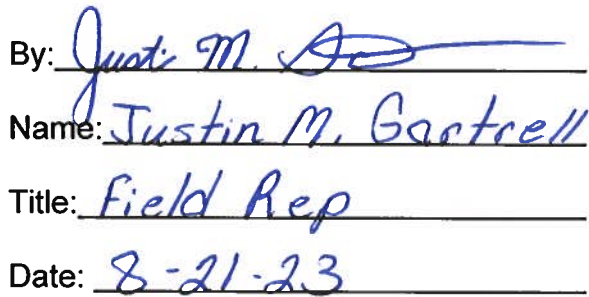 By: Justin M.
Name: Justin M. Gartrell
Title: Field Rep
Date: 8-21-23